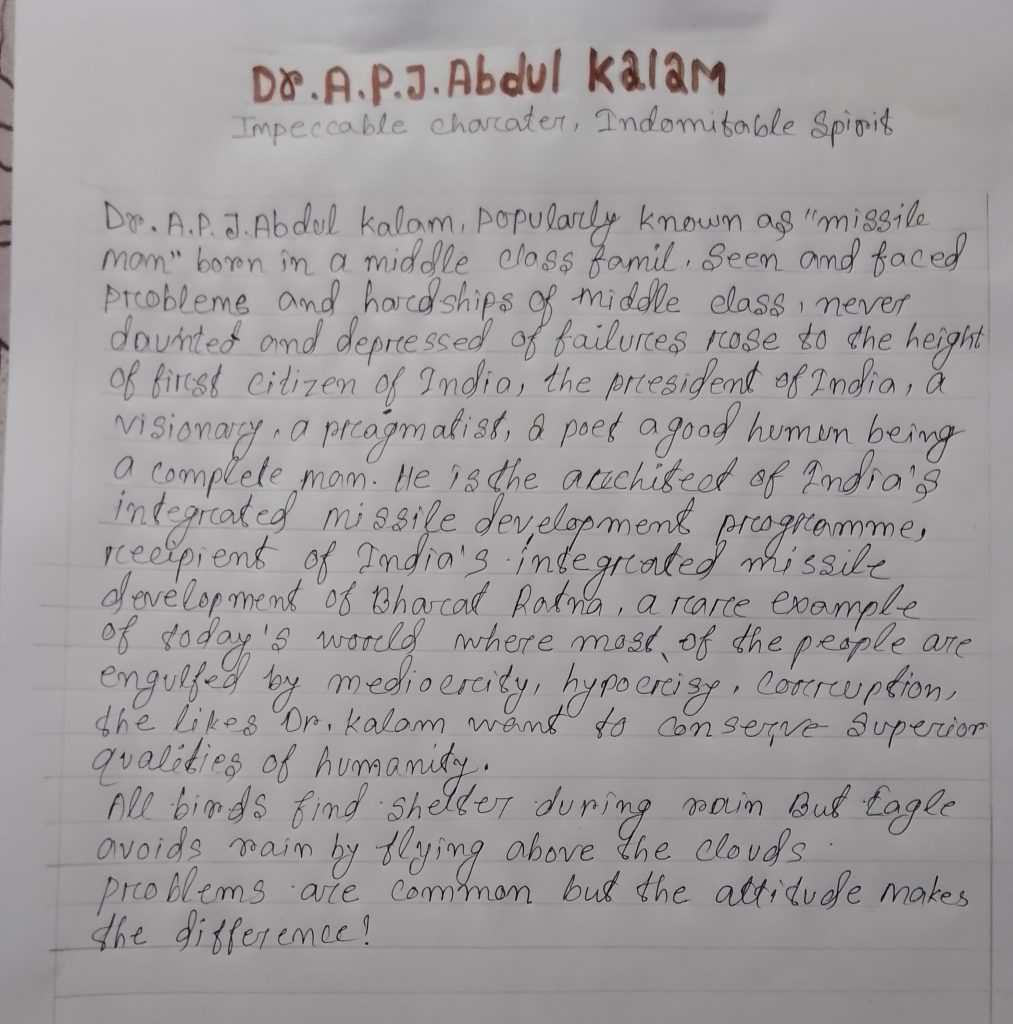 Dr. A.P.J. Abdul Kalam
Impeccable charcater, Indomitable Spirit
Dr. A.P. J. Abdul Kalam, popularly known as "missile
man" born in a middle class famil. Seen and faced
problems and hardships of middle class, never
daunted and depressed of failures rose to the height
of first citizen of India, the president of India, a
visionary, a pragmatist, a poet a good human being
a complete man. He is the architect of India's
integrated missile development programme,
receipient of India's integrated missile
development of Bharat Ratna, a rare example
of today's world where most of the people are
engulfed by mediocrcity, hypocrcisy, Corruption,
the likes Dr. Kalam want to conserve superior
qualities of humanity.
All birds find shelter during rain But Eagle
avoids rain by flying above the clouds.
problems are common but the attitude makes
the difference!